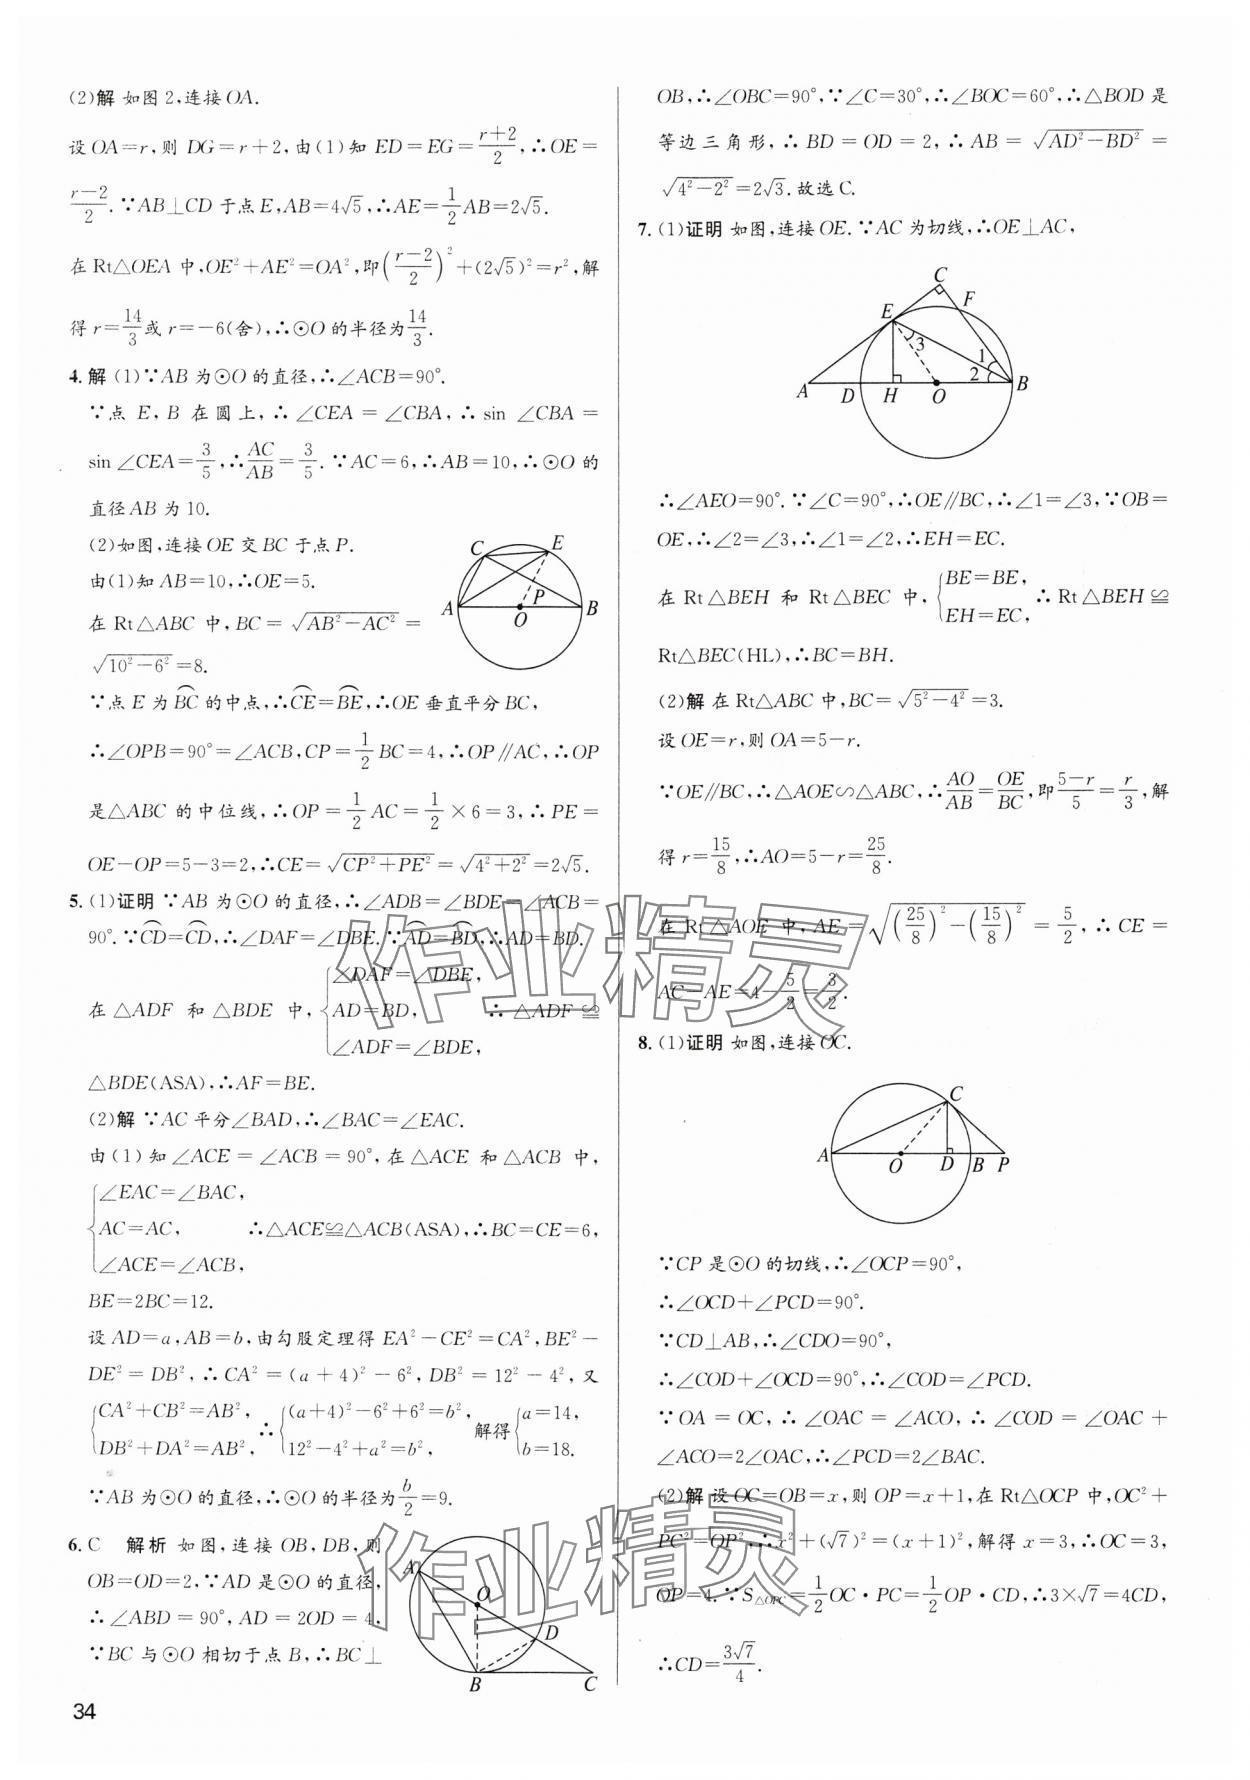 (2)解 如图2,连接OA.
设OA=r,则 DG=r+2,由(1)知 ED=EG=\frac{r+2}{2},∴OE=
\frac{r-2}{2}.∵AB⊥CD于点E,AB=4√5,∴AE=\frac{1}{2}AB=2√5.
在Rt△OEA中,OE²+AE²=OA²,即(\frac{r-2}{2})²+(2√5)²=r²,解
得r=\frac{14}{3}或r=-6(舍),∴⊙O的半径为\frac{14}{3}.
4.解 (1)∵AB为⊙O的直径,∴∠ACB=90°.
∵点 E, B 在圆上,∴∠CEA=∠CBA,∴sin ∠CBA=
sin ∠CEA=\frac{3}{5},∴\frac{AC}{AB}=\frac{3}{5}.∵AC=6,∴AB=10,∴⊙O的
直径AB为10.
(2)如图,连接OE交BC于点P.
由(1)知AB=10,∴OE=5.
在Rt△ABC中,BC=\sqrt{AB²-AC²}=
\sqrt{10²-6²}=8.
C E A P B O
∵点E为\overset{⌒}{BC}的中点,∴\overset{⌒}{CE}=\overset{⌒}{BE},∴OE垂直平分BC,
∴∠OPB=90°=∠ACB,CP=\frac{1}{2}BC=4,∴OP∥AC,∴OP
是△ABC的中位线,∴OP=\frac{1}{2}AC=\frac{1}{2}×6=3,∴PE=
OE-OP=5-3=2,∴CE=\sqrt{CP²+PE²}=\sqrt{4²+2²}=2√5.
5.(1)证明 ∵AB为⊙O的直径,∴∠ADB=∠BDE=∠ACB=
90°.∵\overset{⌒}{CD}=\overset{⌒}{CD},∴∠DAF=∠DBE.∵\overset{⌒}{AD}=\overset{⌒}{BD},∴AD=BD.
在△ADF 和△BDE 中,{∠DAF=∠DBE, AD=BD, ∠ADF=∠BDE, ∴△ADF≌
△BDE(ASA),∴AF=BE.
(2)解 ∵AC平分∠BAD,∴∠BAC=∠EAC.
由(1)知∠ACE=∠ACB=90°,在△ACE和△ACB中,
{∠EAC=∠BAC,
AC=AC, ∴△ACE≌△ACB(ASA),∴BC=CE=6,
∠ACE=∠ACB,
BE=2BC=12.
设AD=a,AB=b,由勾股定理得EA²-CE²=CA²,BE²-
DE²=DB²,∴CA²=(a+4)²-6²,DB²=12²-4²,又
{CA²+CB²=AB², DB²+DA²=AB², ∴{(a+4)²-6²+6²=b², 12²-4²+a²=b², 解得{a=14, b=18.
∵AB为⊙O的直径,∴⊙O的半径为\frac{b}{2}=9.
6.C 解析 如图,连接OB,DB,则
OB=OD=2,∵AD是⊙O的直径,
∴∠ABD=90°,AD=2OD=4.
∵BC与⊙O相切于点B,∴BC⊥
A O D B C
34
OB,∴∠OBC=90°,∵∠C=30°,∴∠BOC=60°,∴△BOD是
等边三角形,∴BD=OD=2,∴AB=\sqrt{AD²-BD²}=
\sqrt{4²-2²}=2√3.故选C.
7.(1)证明 如图,连接OE.∵AC为切线,∴OE⊥AC,
C F E 3 1 2 A D H O B
∴∠AEO=90°.∵∠C=90°,∴OE∥BC,∴∠1=∠3,∵OB=
OE,∴∠2=∠3,∴∠1=∠2,∴EH=EC.
在 Rt△BEH 和 Rt△BEC 中,{BE=BE, EH=EC, ∴Rt△BEH≌
Rt△BEC(HL),∴BC=BH.
(2)解 在Rt△ABC中,BC=\sqrt{5²-4²}=3.
设OE=r,则OA=5-r.
∵OE∥BC,∴△AOE∽△ABC,∴\frac{AO}{AB}=\frac{OE}{BC},即\frac{5-r}{5}=\frac{r}{3},解
得r=\frac{15}{8},∴AO=5-r=\frac{25}{8}.
在 Rt△AOE 中,AE=\sqrt{(\frac{25}{8})²-(\frac{15}{8})²}=\frac{5}{2},∴CE=
AC-AE=4-\frac{5}{2}=\frac{3}{2}.
8.(1)证明 如图,连接OC.
C A O D B P
∵CP是⊙O的切线,∴∠OCP=90°,
∴∠OCD+∠PCD=90°.
∵CD⊥AB,∴∠CDO=90°,
∴∠COD+∠OCD=90°,∴∠COD=∠PCD.
∵OA=OC,∴∠OAC=∠ACO,∴∠COD=∠OAC+
∠ACO=2∠OAC,∴∠PCD=2∠BAC.
(2)解 设OC=OB=x,则OP=x+1,在Rt△OCP中,OC²+
PC²=OP²,∴x²+(√7)²=(x+1)²,解得x=3,∴OC=3,
OP=4.∵S_{△OPC}=\frac{1}{2}OC·PC=\frac{1}{2}OP·CD,∴3×√7=4CD,
∴CD=\frac{3√7}{4}.
作业精灵
作业精灵